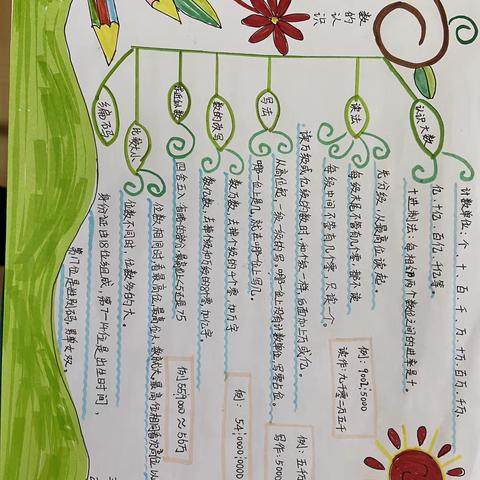 数的认识
认识大数
计数单位：个、十、百、千、万、十万、百万、千万、
亿、十亿、百亿、千亿等。
十进制法：每相邻两个数位之间的进率是十。
读法
先分级，从最高位读起。
每级末尾不管有几个零，都不读
每级中间不管有几个零，只读一个。
读万级或亿级的数时，和个级一样，后面加上万或亿。
例：900¦5000
读作：九百万五千
写法
从高位起，一级一级的写，哪一位上没有计数单位，写零占位。
哪一位上是几，就在哪一位上写几。
例：五千
写作：5000
数的改写
数万数，去掉个级的4个零，加万字
数亿数，去掉个级和万级的8个零，加亿字。
例：54¦0000¦0000
近似数
四舍五入
例：559000≈56万
比较大小
位数相同时看最高位，最高位大，数就大，最高位相同看次高位
位数不同时，位数多的大。
编码
身份证由18位组成，第7-14位是出生日时间，
第17位是性别码，男单女双。